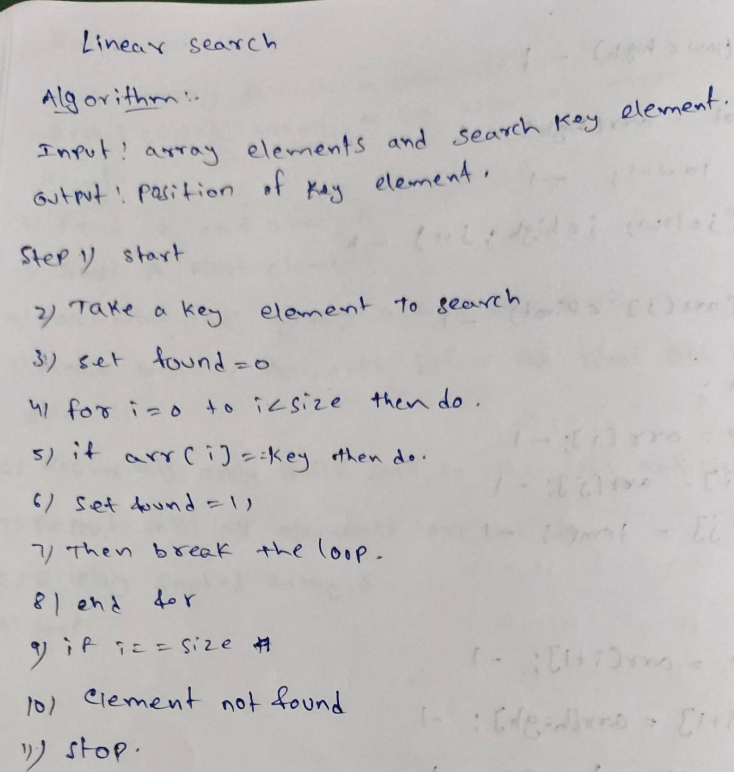 Linear search
Algorithm:-
Input: array elements and search key element.
Output: position of key element.
Step 1) start
2) Take a key element to search
3) set found=0
4) for i=0 to i<size then do.
5) if arr[i]==key then do.
6) set found=1;
7) Then break the loop.
8) end for
9) if i==size
10) Element not found
11) stop.